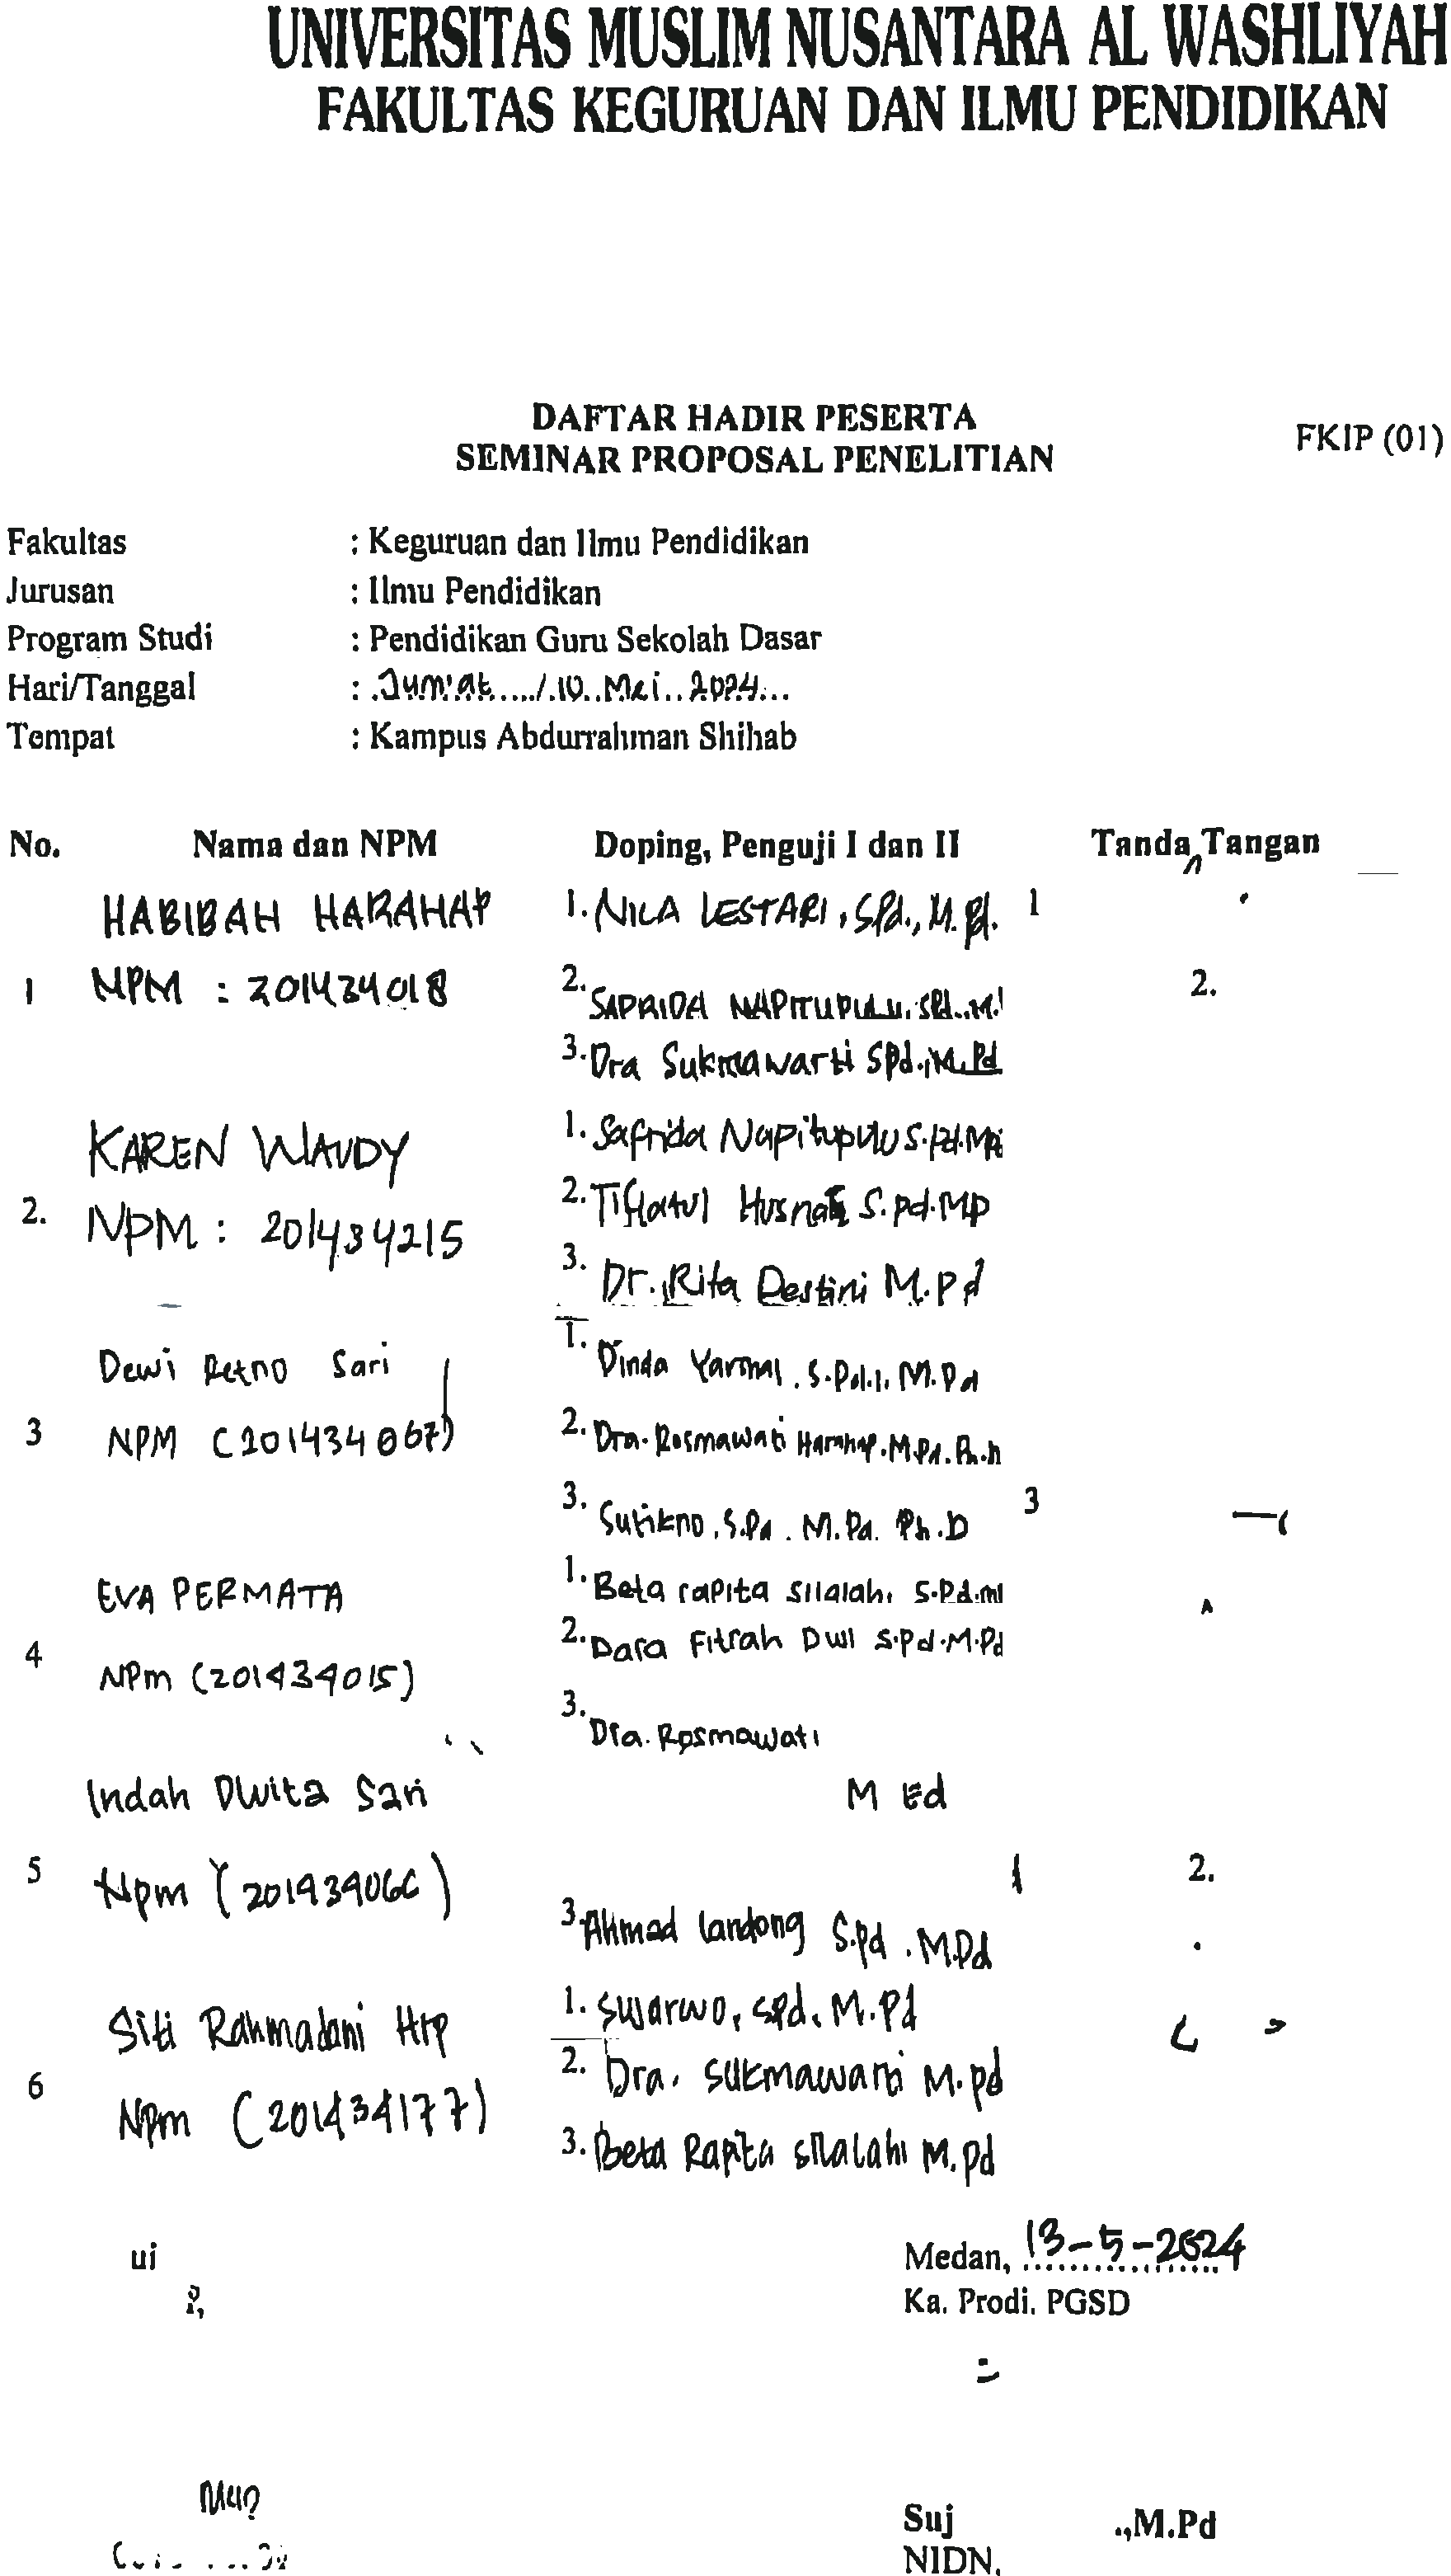 UNIVERSITAS MUSLIM NUSANTARA AL WASHLIYAH
FAKULTAS KEGURUAN DAN ILMU PENDIDIKAN
DAFTAR HADIR PESERTA
SEMINAR PROPOSAL PENELITIAN
FKIP (01)
Fakultas : Keguruan dan Ilmu Pendidikan
Jurusan : Ilmu Pendidikan
Program Studi : Pendidikan Guru Sekolah Dasar
Hari/Tanggal : Jum'at / 10 Mei 2024
Tempat : Kampus Abdurrahman Shihab
No. Nama dan NPM Doping, Penguji I dan II Tanda Tangan
HABIBAH HARAHAP 1. NILA LESTARI, S.Pd., M.Pd. 1
1 NPM : 201434018 2. SAPRIDA NAPITUPULU, SPd., M. 2.
3. Dra Sukmawarti SPd., M.Pd
KAREN WAUDY 1. Safrida Napitupulu S.Pd.
2. NPM : 201434215 2. Tiflatul Husnah S.pd.Mp
3. Dr. Rita Destini M.Pd
Dewi Retno Sari 1. Dinda Yarshal, S.Pd.I, M.Pd
3 NPM (201434067) 2. Dra. Rosmawati Harahap, M.Pd, Ph.D
3. Sutikno, S.Pd, M.Pd, Ph.D 3
EVA PERMATA 1. Beta rapita silalahi S.Pd.
4 NPm (201434015) 2. Dara Fitrah Dwi S.Pd.M.Pd
3. Dra. Rosmawati
Indah Dwita Sari M Ed
5 Npm (201434066) 1 2.
3. Ahmad Landong S.Pd, M.Pd
Siti Rahmadani Hrp 1. Sujarwo, S.Pd, M.Pd
6 Npm (201434177) 2. Dra. Sukmawarti M.pd
3. Beta Rapita silalahi M.pd
ui Medan, 13-5-2024
Ka. Prodi. PGSD
Suj .,M.Pd
NIDN.